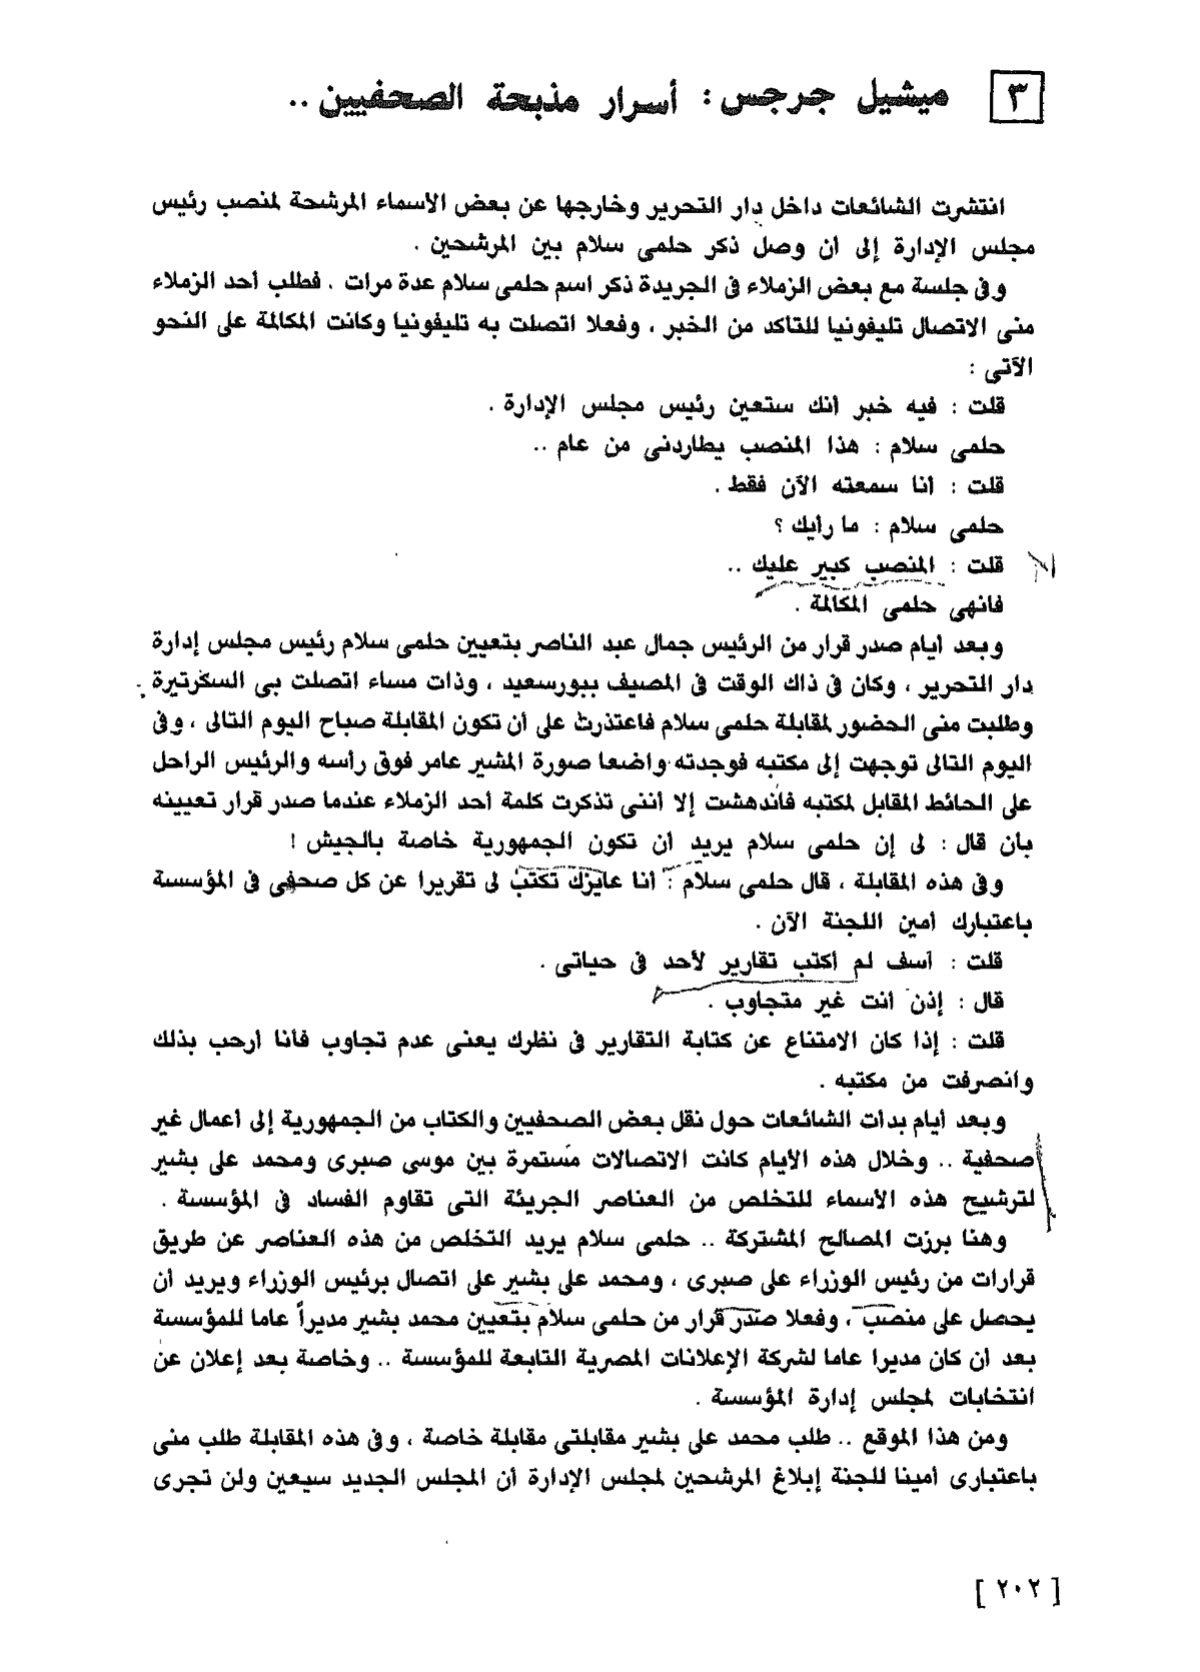 ٣ ميشيل جرجس : أسرار مذبحة الصحفيين ..
انتشرت الشائعات داخل دار التحرير وخارجها عن بعض الأسماء المرشحة لمنصب رئيس
مجلس الإدارة إلى أن وصل ذكر حلمى سلام بين المرشحين .
وفى جلسة مع بعض الزملاء فى الجريدة ذكر اسم حلمى سلام عدة مرات . فطلب أحد الزملاء
منى الاتصال تليفونيا للتاكد من الخبر ، وفعلا اتصلت به تليفونيا وكانت المكالمة على النحو
الآتى :
قلت : فيه خبر أنك ستعين رئيس مجلس الإدارة .
حلمى سلام : هذا المنصب يطاردنى من عام ..
قلت : أنا سمعته الآن فقط .
حلمى سلام : ما رأيك ؟
قلت : المنصب كبير عليك ..
فانهى حلمى المكالمة .
وبعد أيام صدر قرار من الرئيس جمال عبد الناصر بتعيين حلمى سلام رئيس مجلس إدارة
دار التحرير ، وكان فى ذاك الوقت فى المصيف ببورسعيد ، وذات مساء اتصلت بى السكرتيرة
وطلبت منى الحضور لمقابلة حلمى سلام فاعتذرت على أن تكون المقابلة صباح اليوم التالى ، وفى
اليوم التالى توجهت إلى مكتبه فوجدته واضعا صورة المشير عامر فوق رأسه والرئيس الراحل
على الحائط المقابل لمكتبه فأندهشت إلا أننى تذكرت كلمة أحد الزملاء عندما صدر قرار تعيينه
بأن قال : لى إن حلمى سلام يريد أن تكون الجمهورية خاصة بالجيش !
وفى هذه المقابلة ، قال حلمى سلام : أنا عايزك تكتب لى تقريرا عن كل صحفى فى المؤسسة
باعتبارك أمين اللجنة الآن .
قلت : آسف لم أكتب تقارير لأحد فى حياتى .
قال : إذن أنت غير متجاوب .
قلت : إذا كان الامتناع عن كتابة التقارير فى نظرك يعنى عدم تجاوب فأنا أرحب بذلك
وانصرفت من مكتبه .
وبعد أيام بدأت الشائعات حول نقل بعض الصحفيين والكتاب من الجمهورية إلى أعمال غير
صحفية .. وخلال هذه الأيام كانت الاتصالات مستمرة بين موسى صبرى ومحمد على بشير
لترشيح هذه الأسماء للتخلص من العناصر الجريئة التى تقاوم الفساد فى المؤسسة .
وهنا برزت المصالح المشتركة .. حلمى سلام يريد التخلص من هذه العناصر عن طريق
قرارات من رئيس الوزراء على صبرى ، ومحمد على بشير على اتصال برئيس الوزراء ويريد أن
يحصل على منصب ، وفعلا صدر قرار من حلمى سلام بتعيين محمد بشير مديراً عاما للمؤسسة
بعد أن كان مديرا عاما لشركة الإعلانات المصرية التابعة للمؤسسة .. وخاصة بعد إعلان عن
انتخابات لمجلس إدارة المؤسسة .
ومن هذا الموقع .. طلب محمد على بشير مقابلتى مقابلة خاصة ، وفى هذه المقابلة طلب منى
باعتبارى أمينا للجنة إبلاغ المرشحين لمجلس الإدارة أن المجلس الجديد سيعين ولن تجرى
[ ٢٠٢ ]